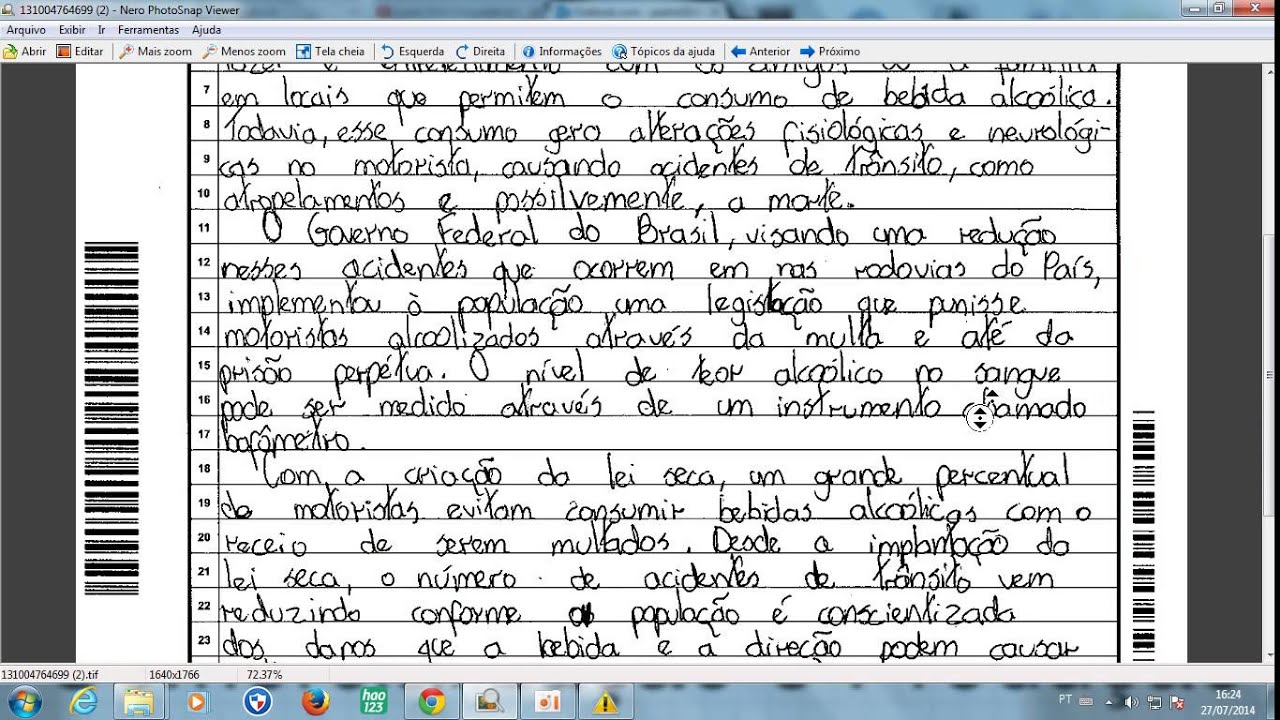 131004764699 (2) - Nero PhotoSnap Viewer
Arquivo Exibir Ir Ferramentas Ajuda
Abrir Editar Mais zoom Menos zoom Tela cheia Esquerda Direita Informações Tópicos da ajuda Anterior Próximo
lazer e entretenimento com os amigos ou a família
7 em locais que permitem o consumo de bebida álcoólica.
8 Todavia, esse consumo gera alterações fisiológicas e neurológi-
9 cas no motorista, causando acidentes de trânsito, como
10 atropelamentos e possilvemente, a morte.
11 O Governo Federal do Brasil, visando uma redução
12 nesses acidentes que ocorrem em nas rodovias do País,
13 implementou à população uma legislação que punisse
14 motoristas alcoolizados através da multa e até da
15 prisão perpétua. O nível de teor alcoólico no sangue
16 pode ser medido através de um instrumento chamado
17 bafômetro.
18 Com a criação da lei seca, um grande percentual
19 de motoristas evitam consumir bebidas alcoólicas com o
20 receio de serem multados. Desde a implantação da
21 lei seca, o número de acidentes de trânsito vem
22 reduzindo conforme a população é conscientizada
23 dos danos que a bebida e a direção podem causar
131004764699 (2).tif 1640x1766 72.37%
hao
123
PT 16:24
27/07/2014